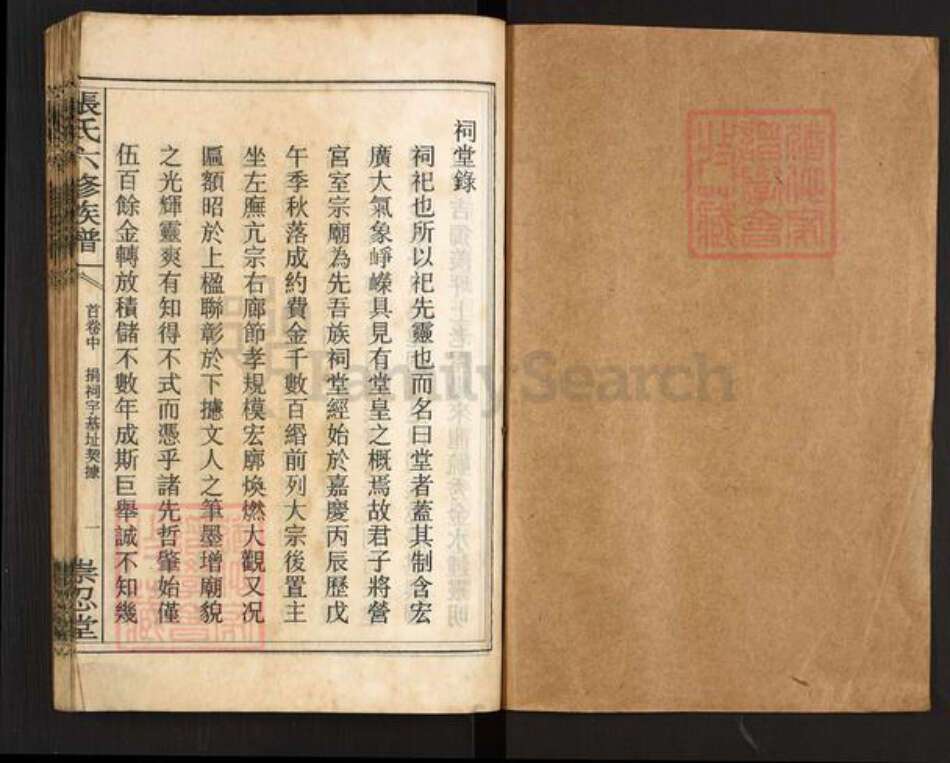 祠堂錄
祠祀也所以祀先靈也而名曰堂者蓋其制含宏
廣大氣象崢嶸具見有堂皇之概焉故君子將營
宮室宗廟為先吾族祠堂經始於嘉慶丙辰歷戊
午季秋落成約費金千數百緡前列大宗後置主
坐左廡亢宗右廊節孝規模宏廓煥燃大觀又况
匾額昭於上楹聯彰於下攄文人之筆墨增廟貌
之光輝靈爽有知得不式而憑乎諸先哲肇始僅
伍百餘金轉放積儲不數年成斯巨舉誠不知幾
張氏六修族譜
首卷中 捐祠宇基址契據
一
崇忍堂
FamilySearch